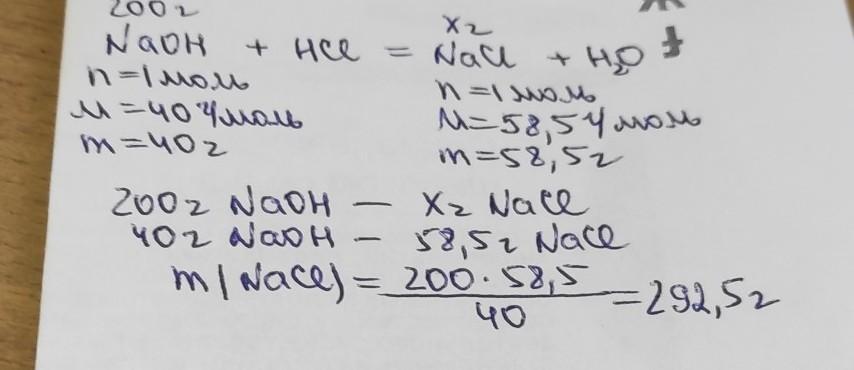 200г хг
NaOH + HCl = NaCl + H₂O
n=1моль n=1моль
M=40г/моль M=58,5г/моль
m=40г m=58,5г
200г NaOH — хг NaCl
40г NaOH — 58,5г NaCl
m(NaCl) = 200·58,5 / 40 = 292,5г